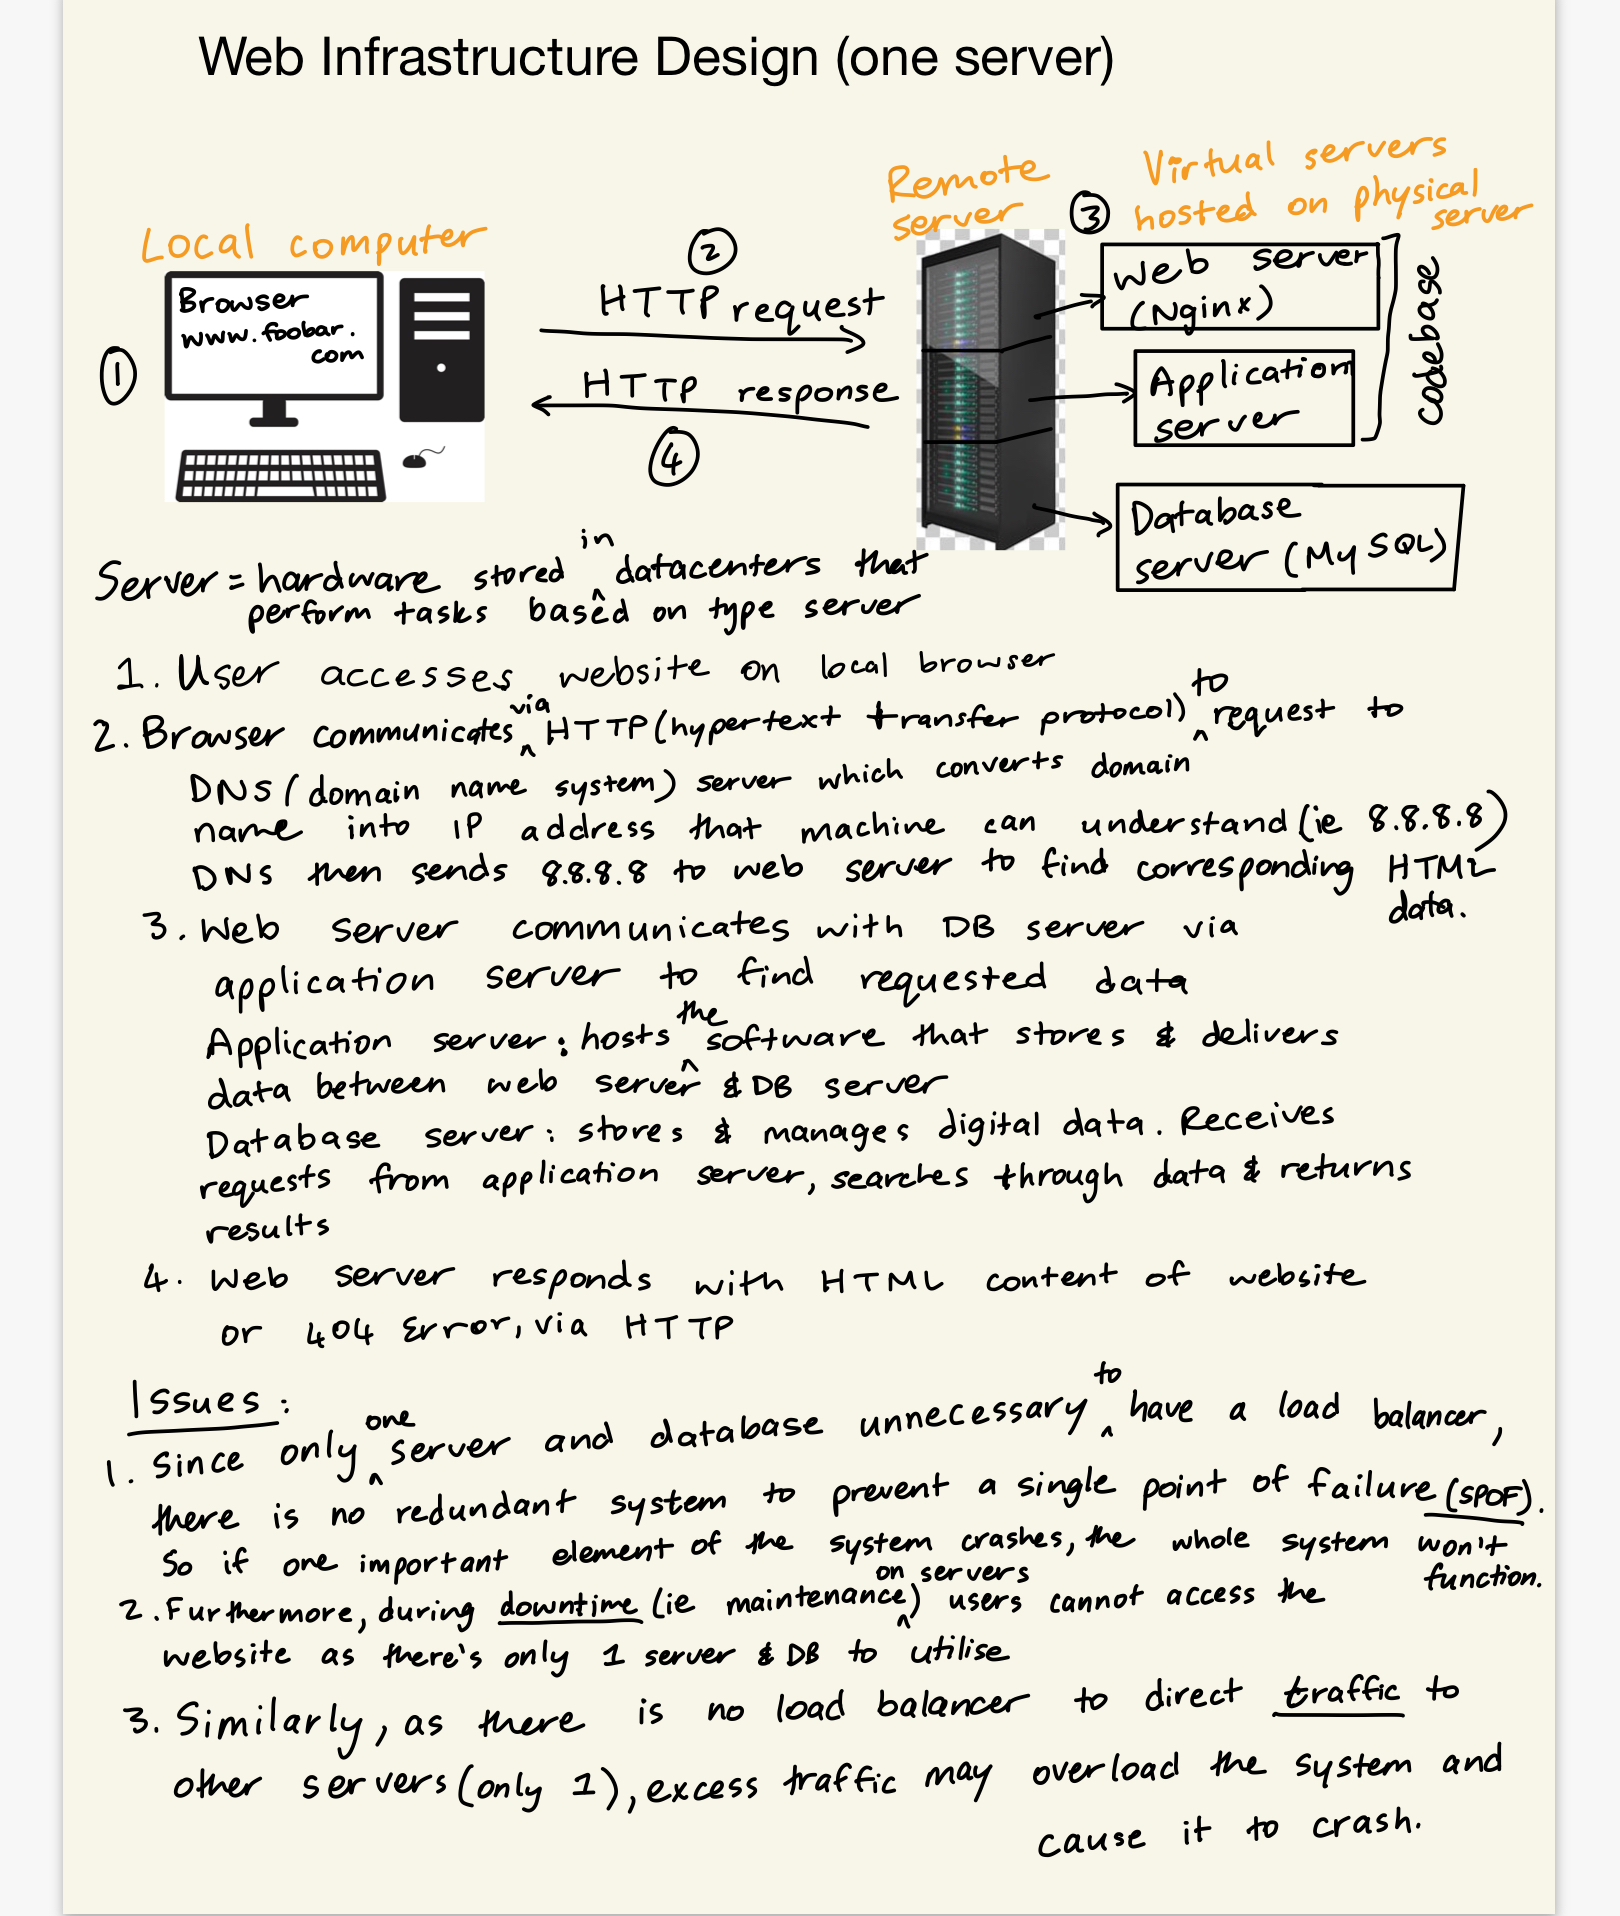 Web Infrastructure Design (one server)
Local computer
Remote
server
Virtual servers
hosted on physical
server
1
Browser
www.foobar.
com
2
HTTP request
HTTP response
4
3
Web server
(Nginx)
Application
server
codebase
Database
server (MySQL)
Server = hardware stored in datacenters that
perform tasks based on type server
1. User accesses website on local browser
2. Browser communicates via HTTP (hypertext transfer protocol) to request to
DNS (domain name system) server which converts domain
name into IP address that machine can understand (ie 8.8.8.8)
DNS then sends 8.8.8.8 to web server to find corresponding HTML
data.
3. Web server communicates with DB server via
application server to find requested data
Application server: hosts the software that stores & delivers
data between web server & DB server
Database server: stores & manages digital data. Receives
requests from application server, searches through data & returns
results
4. Web server responds with HTML content of website
or 404 Error, via HTTP
Issues:
1. Since only one server and database unnecessary to have a load balancer,
there is no redundant system to prevent a single point of failure (SPOF).
So if one important element of the system crashes, the whole system won't
function.
2. Furthermore, during downtime (ie maintenance on servers) users cannot access the
website as there's only 1 server & DB to utilise
3. Similarly, as there is no load balancer to direct traffic to
other servers (only 1), excess traffic may overload the system and
cause it to crash.